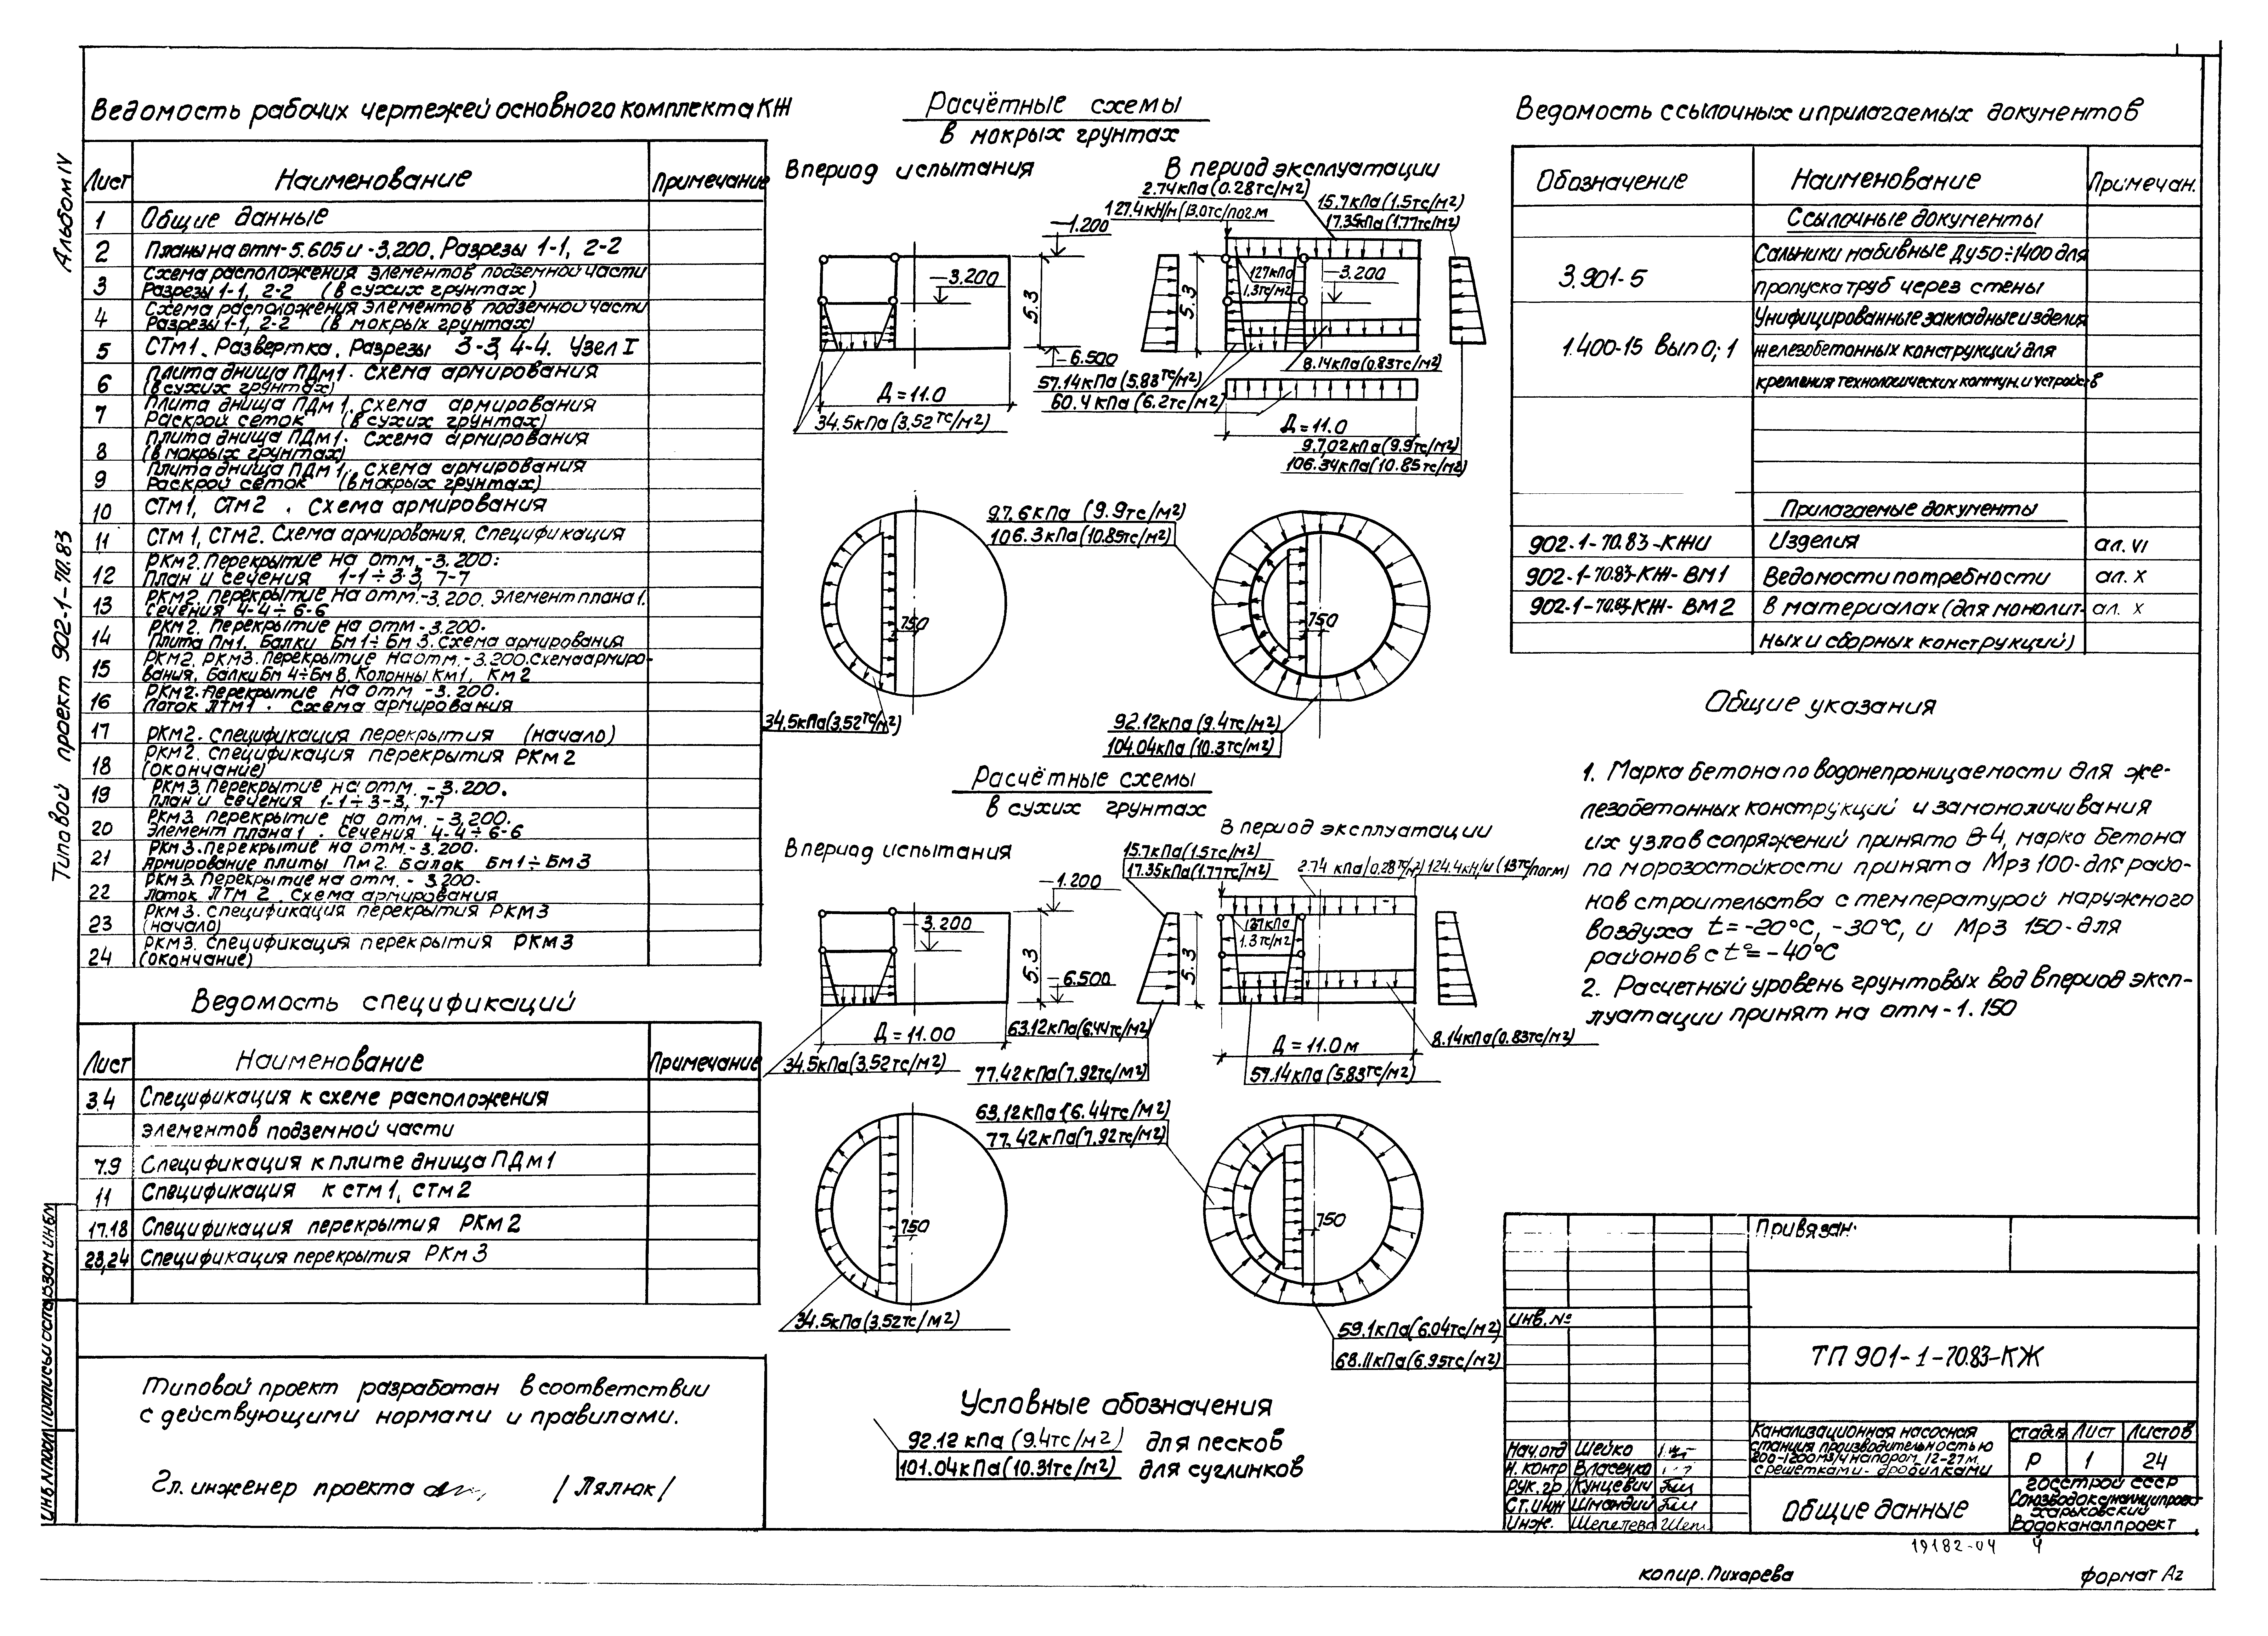 Альбом IV
Типовой проект 902-1-70.83
Ведомость рабочих чертежей основного комплекта КЖ
Лист Наименование Примечание
1 Общие данные
2 Планы на отм-5.605 и -3,200. Разрезы 1-1, 2-2
3 Схема расположения элементов подземной части
Разрезы 1-1, 2-2 (в сухих грунтах)
4 Схема расположения элементов подземной части
Разрезы 1-1, 2-2 (в мокрых грунтах)
5 СТм1. Развертка. Разрезы 3-3, 4-4. Узел I
6 Плита днища ПДм1. Схема армирования
(в сухих грунтах)
7 Плита днища ПДм1. Схема армирования
Раскрой сеток (в сухих грунтах)
8 Плита днища ПДм1. Схема армирования
(в мокрых грунтах)
9 Плита днища ПДм1. Схема армирования
Раскрой сеток (в мокрых грунтах)
10 СТм1, СТм2. Схема армирования
11 СТм1, СТм2. Схема армирования. Спецификация
12 РКм2. Перекрытие на отм.-3,200:
План и сечения 1-1÷3-3, 7-7
13 РКм2. Перекрытие на отм.-3,200. Элемент плана 1.
Сечения 4-4÷6-6
14 РКм2. Перекрытие на отм-3.200.
Плита Пм1. Балки Бм1÷Бм3. Схема армирования
15 РКм2, РКм3. Перекрытие на отм.-3.200. Схема армиро-
вания. Балки Бм4÷Бм8. Колонны Км1, Км2
16 РКм2. Перекрытие на отм -3.200.
Лоток ЛТм1. Схема армирования
17 РКм2. Спецификация перекрытия (начало)
18 РКм2. Спецификация перекрытия РКм2
(окончание)
19 РКм3. Перекрытие на отм. -3.200.
План и сечения 1-1÷3-3, 7-7
20 РКм3 Перекрытие на отм. -3,200.
Элемент плана 1. Сечения 4-4÷6-6
21 РКм3. Перекрытие на отм.-3.200.
Армирование плиты Пм2. Балок Бм1÷Бм3
22 РКм3. Перекрытие на отм. - 3,200.
Лоток ЛТм2. Схема армирования
23 РКм3. Спецификация перекрытия РКм3
(начало)
24 РКм3. Спецификация перекрытия РКм3
(окончание)
Ведомость спецификаций
Лист Наименование Примечание
3.4 Спецификация к схеме расположения
элементов подземной части
7.9 Спецификация к плите днища ПДм1
11 Спецификация к СТм1, СТм2
17.18 Спецификация перекрытия РКм2
23,24 Спецификация перекрытия РКм3
Типовой проект разработан в соответствии
с действующими нормами и правилами.
Гл. инженер проекта /Лялюк/
Расчётные схемы
в мокрых грунтах
В период испытания
-1.200
-3.200
5.3
-6.500
Д=11.0
34.5кПа(3.52тс/м2)
В период эксплуатации
2.74кПа(0.28тс/м2)
127.4кН/м(13.0тс/пог.м
15.7кПа(1.5тс/м2)
17.35кПа(1.77тс/м2)
127кПа
1.3тс/м2
-3.200
5.3
8.14кПа(0.83тс/м2)
57.14кПа(5.88тс/м2)
60.4кПа(6.2тс/м2)
Д=11.0
9.7,02кПа(9.9тс/м2)
106.34кПа(10.85тс/м2)
750
34.5кПа(3.52тс/м2)
9.7.6кПа (9.9тс/м2)
106.3кПа(10.85тс/м2)
750
92.12кПа(9.4тс/м2)
104.04кПа(10.3тс/м2)
Расчётные схемы
в сухих грунтах
В период испытания
-1.200
-3.200
5.3
6.500
Д=11.00
34.5кПа(3.52тс/м2)
В период эксплуатации
15.7кПа(1.5тс/м2)
17.35кПа(1.77тс/м2)
2.74 кПа(0.28тс/м2) 124.4кН/м(13тс/погм)
127кПа
1.3тс/м2
5.3
63.12кПа(6.44тс/м2)
77.42кПа(7.92тс/м2)
Д=11.0м
8.14кПа(0.83тс/м2)
57.14кПа(5.83тс/м2)
750
34.5кПа(3.52тс/м2)
63,12кПа(6.44тс/м2)
77,42кПа(7.92тс/м2)
750
59.1кПа(6.04тс/м2)
68.11кПа(6.95тс/м2)
Условные обозначения
92.12 кПа (9.4тс/м2) для песков
101.04кПа(10.31тс/м2) для суглинков
Ведомость ссылочных и прилагаемых документов
Обозначение Наименование Примечан.
Ссылочные документы
3.901-5 Сальники набивные Ду50÷1400 для
пропуска труб через стены
1.400-15 Вып 0; 1 Унифицированные закладные изделия
железобетонных конструкций для
крепления технологических коммун. и устройств
Прилагаемые документы
902-1-70.83-КЖИ Изделия ал. VI
902-1-70.83-КЖ-ВМ1 Ведомости потребности ал. X
902-1-70.83-КЖ-ВМ2 в материалах (для монолит- ал. X
ных и сборных конструкций)
Общие указания
1. Марка бетона по водонепроницаемости для же-
лезобетонных конструкций и замоноличивания
их узлов сопряжений принято В-4, марка бетона
по морозостойкости принята Мрз 100-для райо-
нов строительства с температурой наружного
воздуха t=-20°С, -30°С, и Мрз 150-для
районов с t°=-40°С
2. Расчетный уровень грунтовых вод в период эксп-
луатации принят на отм-1.150
Привязан:
Инв.№
ТП 901-1-70.83-КЖ
Нач.отд Шейко
Н.контр Власенко
Рук.гр Кунцевич
Ст.инж Шмандий
Инж. Шепелева
Канализационная насосная
станция производительностью
200-1200м3/ч напором 12-27м.
с решетками-дробилками
стадия Лист Листов
Р 1 24
Общие данные
Госстрой СССР
Союзводоканалпроект
Харьковский
Водоканалпроект
19182-04 4
копир. Пихарева
формат А2